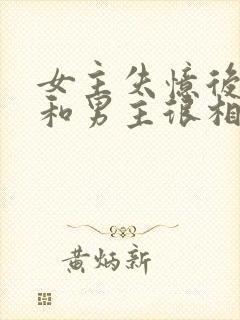 女主失憶後
和男主误相
黄炳新